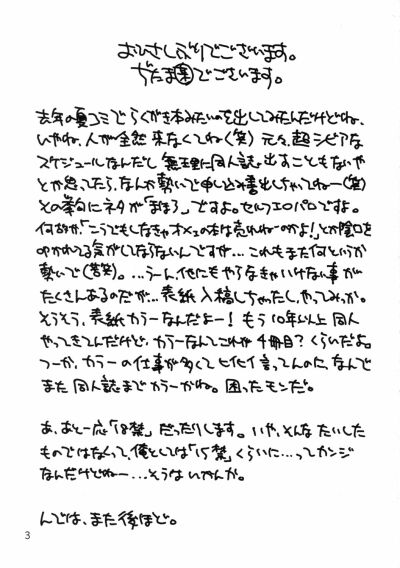 おひさしぶりでございます。
ぢたま㊙でございます。
去年の夏コミでらくがき本みたいのを出してみたんだけどね、
いやね、人が全然来なくてね(笑) 元々、超シビアな
スケジュールなんだし無理に同人誌出すこともないや
とか思ってたら、なんか勢いで申し込み書出しちゃってねー(笑)
その挙句にネタが「まほろ」ですよ。セルフエロパロですよ。
何故か「こうでもしなきゃオメェの本は売れねーのかよ!」とか陰口を
叩かれてる気がしてならないんですが…これもまた何というか
勢いで(苦笑)。…うーん、他にもやらなきゃいけない事が
たくさんあるのだが…表紙入稿しちゃったし、やってみっか。
そうそう、表紙カラーなんだよー!もう10年以上同人
やってきてんだけど、カラーなんてこれが4冊目?くらいだよ。
つーか、カラーの仕事が多くてヒイヒイ言ってんのに、なんで
また同人誌までカラーかね。困ったモンだ。
あ、あと一応「18禁」だったりします。いや、そんなたいした
ものではなくって、俺としては「15禁」くらいに…ってカンジ
なんだけどねー…そうはいかんか。
んでは、また後ほど。
3